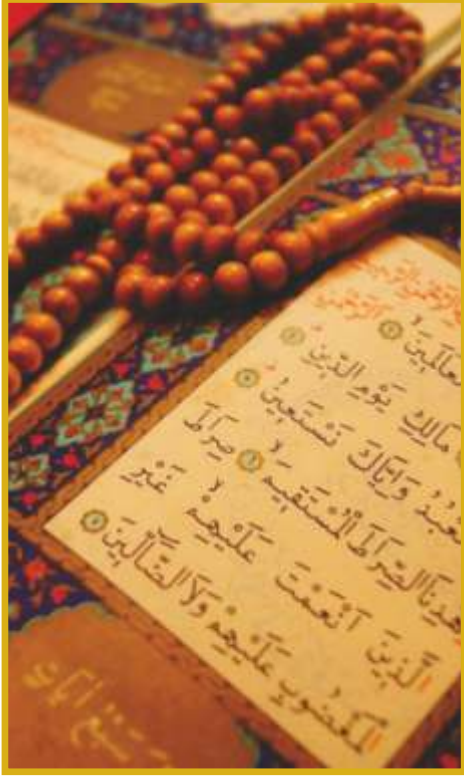 الرَّحْمٰنِ الرَّحِيمِ
عَالَمِينَۙ
مَالِكِ يَوْمِ الدِّينِۜ
نَعْبُدُ وَاِيَّاكَ نَسْتَعِينُۜ
هْدِنَا الصِّرَاطَ الْمُسْتَقِيمَۙ صِرَاطَ
الَّذِينَ اَنْعَمْتَ عَلَيْهِمْۙ غَيْرِ
الْمَغْضُوبِ عَلَيْهِمْ وَلَا الضَّٓالِّينَ
سَبْعُ اٰيَاتٍ